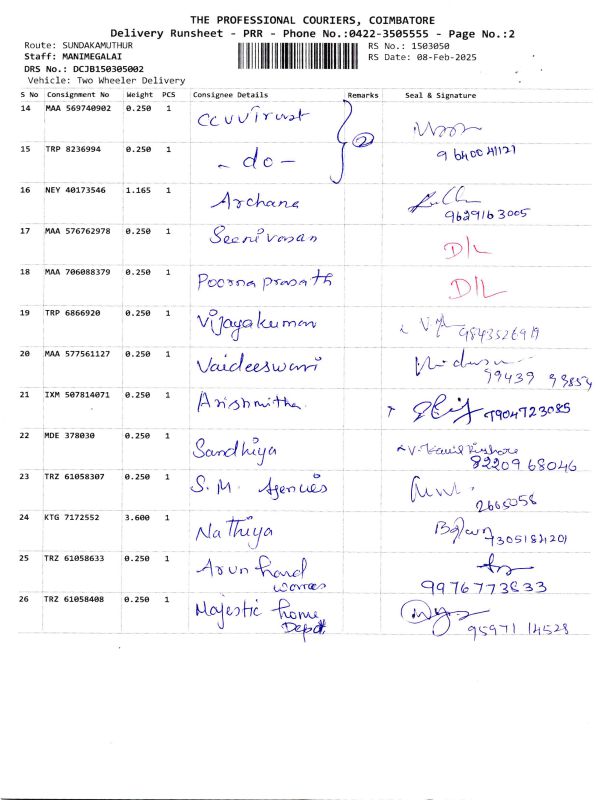 THE PROFESSIONAL COURIERS, COIMBATORE
Delivery Runsheet - PRR - Phone No.:0422-3505555 - Page No.:2
Route: SUNDAKAMUTHUR
Staff: MANIMEGALAI
DRS No.: DCJB150305002
Vehicle: Two Wheeler Delivery
RS No.: 1503050
RS Date: 08-Feb-2025
S No Consignment No Weight PCS Consignee Details Remarks Seal & Signature
14 MAA 569740902 0.250 1 CCUVTrust 2
15 TRP 8236994 0.250 1 - do - 9640041121
16 NEY 40173546 1.165 1 Archana 9629163005
17 MAA 576762978 0.250 1 Seenivasan D/L
18 MAA 706088379 0.250 1 Poornaprasath D/L
19 TRP 6866920 0.250 1 Vijayakumar
20 MAA 577561127 0.250 1 Vaideeswari 99439 93854
21 IXM 507814071 0.250 1 Arishmitha 7904723085
22 MDE 378030 0.250 1 Sandhiya 8220968046
23 TRZ 61058307 0.250 1 S.M. Agencies 2665058
24 KTG 7172552 3.600 1 Nathiya 7305184201
25 TRZ 61058633 0.250 1 Arun hard
9976773833
26 TRZ 61058408 0.250 1 Majestic home
Depot 95971 14528